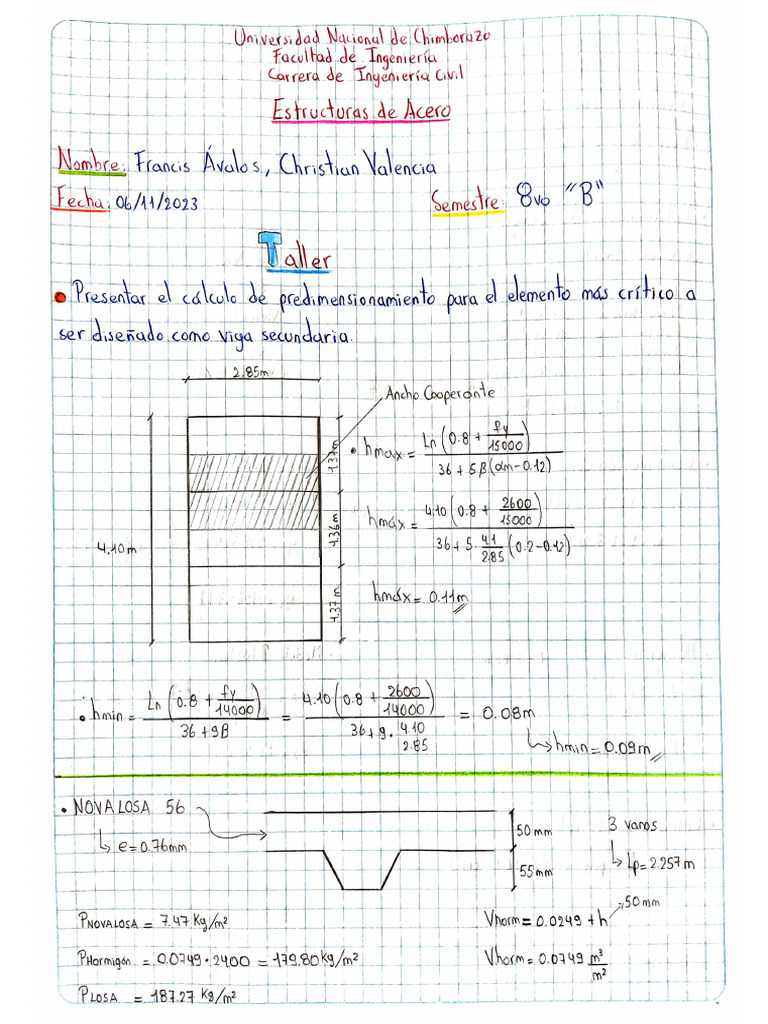 Universidad Nacional de Chimborazo
Facultad de Ingeniería
Carrera de Ingeniería Civil
Estructuras de Acero
Nombre: Francis Ávalos, Christian Valencia
Fecha: 06/11/2023 Semestre: 8vo "B"
Taller
• Presentar el cálculo de predimensionamiento para el elemento más crítico a
ser diseñado como viga secundaria.
2.85m
Ancho Cooperante
4.10m
1.37m
1.36m
1.37m
• hmax = Ln(0.8 + fy/15000) / 36 + 5β(αm-0.12)
hmáx = 4.10(0.8 + 2600/15000) / 36 + 5·4.1/2.85(0.2-0.12)
hmáx = 0.11m
• hmin = Ln(0.8 + fy/14000) / 36 + 9β = 4.10(0.8 + 2600/14000) / 36 + 9·4.10/2.85 = 0.08m
↳ hmin = 0.09m
• NOVALOSA 56
↳ e = 0.76mm
50 mm
55mm
3 vanos
↳ Lp = 2.257m
PNOVALOSA = 7.47 Kg/m²
Vhorm = 0.0249 + h
50 mm
PHormigón = 0.0749·2400 = 179.80 Kg/m²
Vhorm = 0.0749 m³/m²
PLOSA = 187.27 Kg/m²